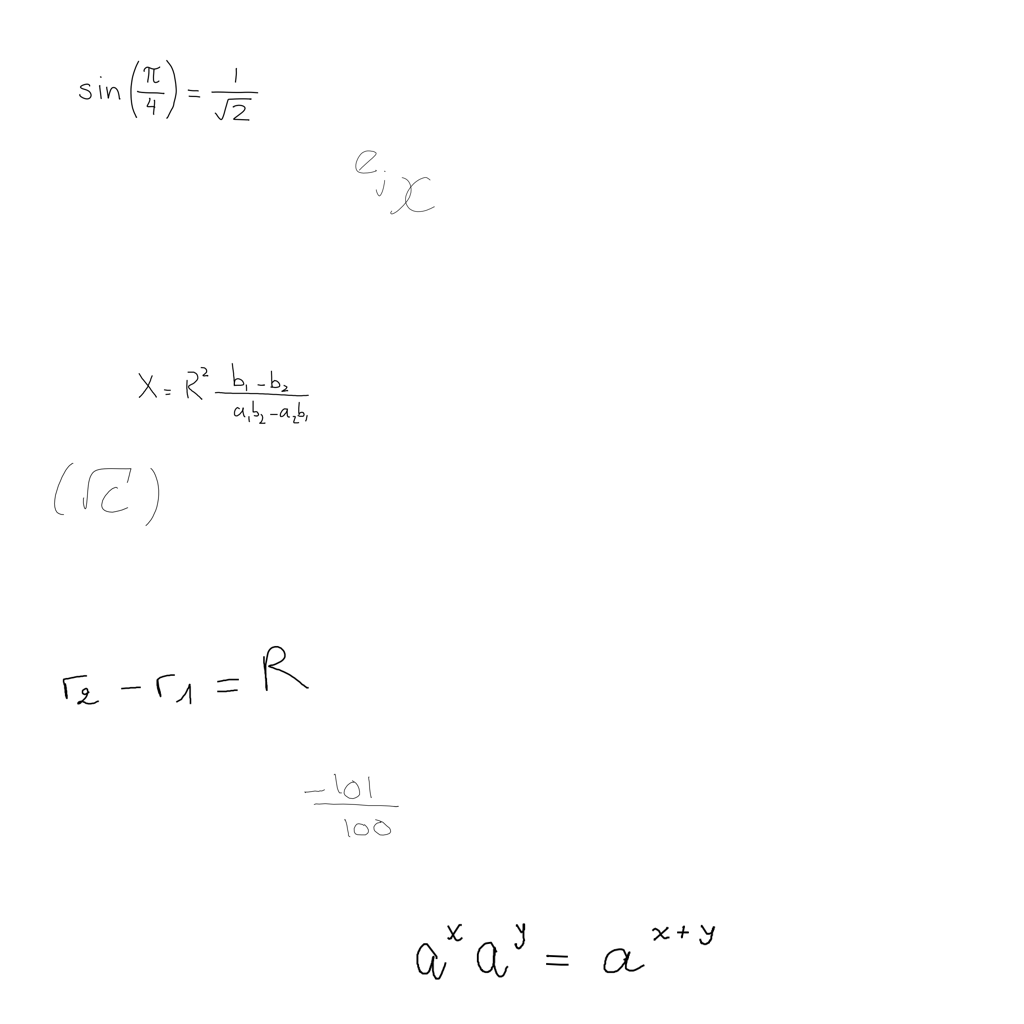 sin(π/4) = 1/√2
e_j x
X = R² (b₁ - b₂)/(a₁b₂ - a₂b₁)
(√c)
r₂ - r₁ = R
-101/100
a^x a^y = a^(x+y)